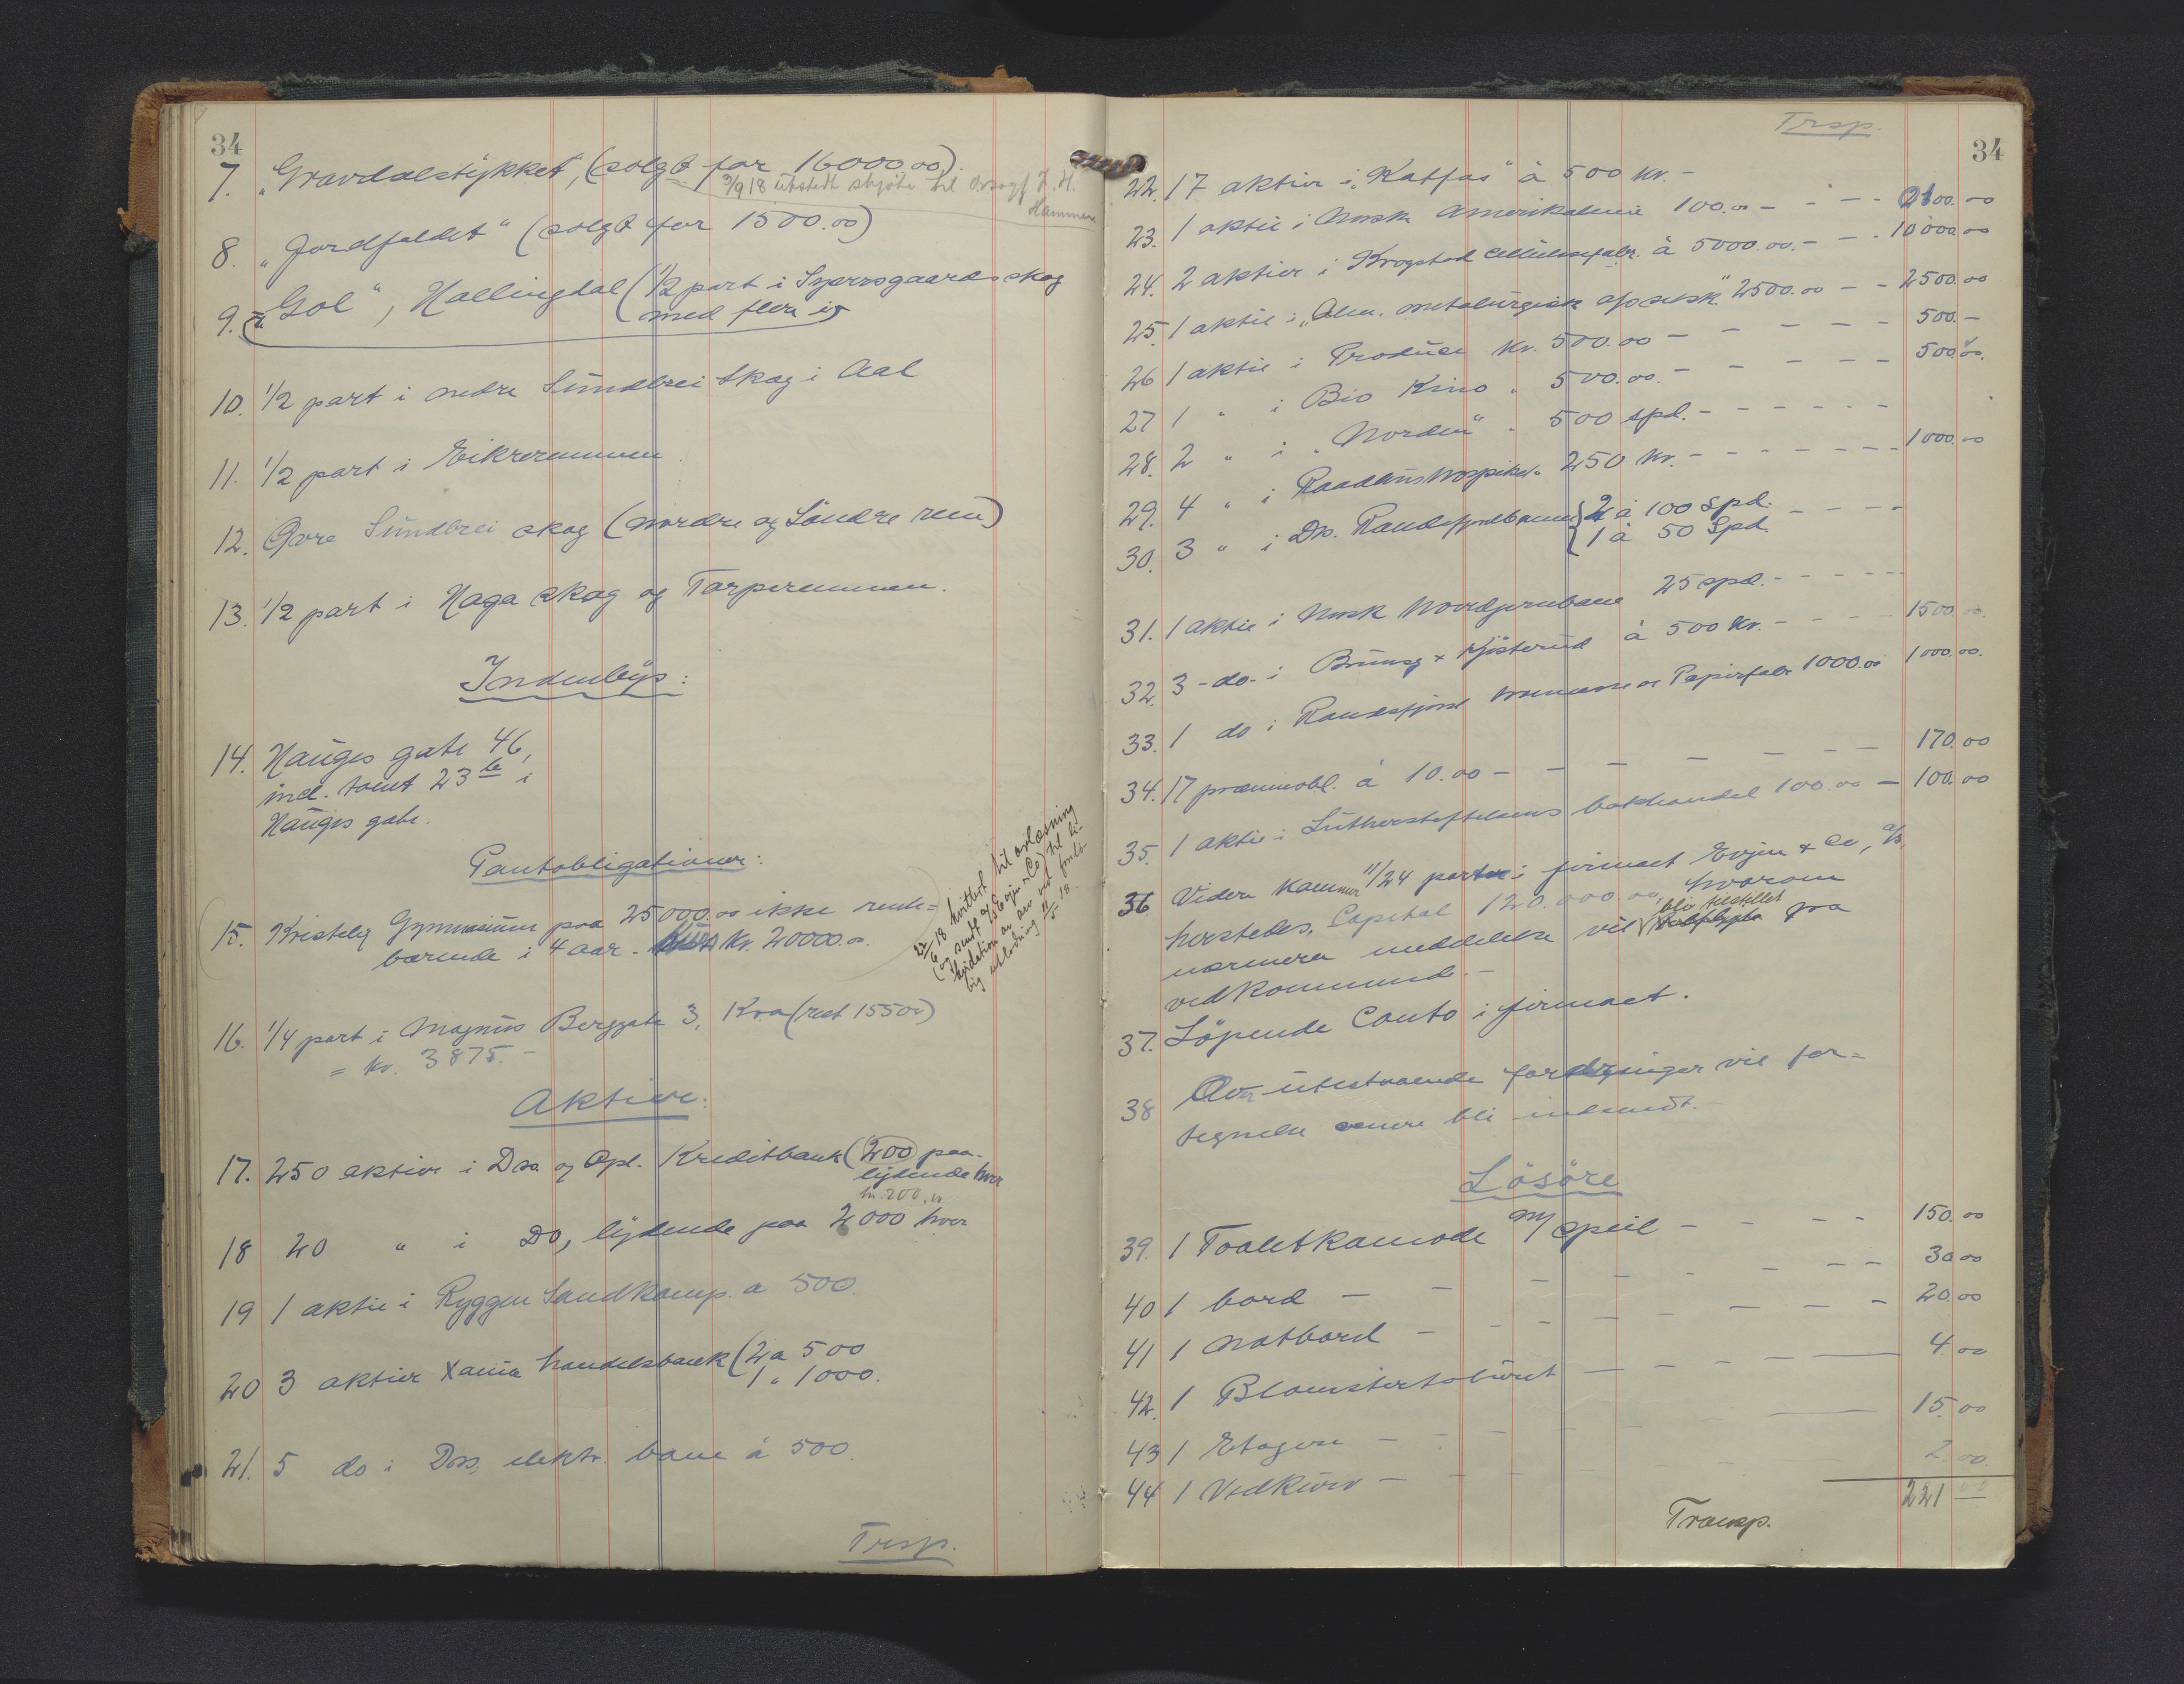 34
7. "Gravdalstykket", (solgt for 16000.00)
3/9 18 utstedt skjöte til O.sagf. J. H.
Hammer
8. "Jordfaldet" (solgt for 1500.00)
9. "Gol", Hallingdal (1/2 part i
skog
med flere
10. 1/2 part i nedre Sundbrei skog i Aal
11. 1/2 part i Eikreremmen
12. Övre Sundbrei skog (nordre og Söndre rem)
13. 1/2 part i Haga skog og Torperemmen.
Indenbys:
14. Hauges gate 46,
incl. tomt 23 b i
Hauges gate.
Pantobligationer:
15. Kristelig Gymnasium paa 25000.00 ikke rente=
bærende i 4 aar. - kurs kr. 20000.00
22/6 18 kvittert til avlæsning
(og sendt a/s Evjen & Co) til li-
kvidation av arv ved forelö-
big utlodning 11/5 18.
16. 1/4 part i Magnus Berggate 3, Kra (rest 15500)
= kr. 3875.-
Aktier:
17. 250 aktier i Drs. og Opl. Kreditbank (200 paa-
lydende hver
kr. 200.00
18 20 " i Do, lydende paa 2000 hver
19 1 aktie i Ryggen Sandkomp. a 500.
20 3 aktier Xania handelsbank (2 a 500
1 " 1000.
21. 5 do i Drs. elektr. bane á 500.
Trsp.
Trsp.
34
22. 17 aktier i "Katfos" á 500 kr. -
23. 1 aktie i Norsk Amerikalinie 100.00 - - - - 100.00
24. 2 aktier i Krogstad Cellulosefabr. á 5000.00. - - - 10000.00
25. 1 aktie i "Alm. metalurgisk 2500.00 - - 2500.00
26 1 aktie i Producer kr. 500.00 - - - - - - 500.-
27 1 " i Bio Kino " 500.00. - - - - - 500.00.
28. 2 " i "Norden" " 500 spd. - - - - - -
29. 4 " i 250 kr. - - - - - - - 1000.00
30. 3 " i Dr. Randsfjordbanen {2 á 100 Spd. - - - -
{1 á 50 Spd.
31. 1 aktie i Norsk Hovedjernbane 25 spd. - - - - - -
32. 3 - do - i Brunsg & Kjösterud á 500 kr. - - - - 1500.00.
33. 1 do i Randsfjord træmasse og Papirfabr. 1000.00 1000.00.
34. 17 præmieobl. á 10.00 - - - - - - - 170.00
35. 1 aktie i Lutherstiftelsens bokhandel 100.00 - 100.00
36 Videre kommer 11/24 parter i firmaet Evjen & Co, a/s,
hersteds, Capital 120.000.00, hvorom
nærmere meddelelse vil bli tilstillet fra
vedkommende. -
37. Löpende Conto i firmaet.
38 Over utestaaende fordringer vil for=
tegnelse senere bli indsendt. -
Lösöre
39. 1 Toaletkomode m/ speil - - - - 150.00
40 1 bord - - - - - - - - 30.00
41 1 natbord - - - - - - - - 20.00
42. 1 Blomstertaburet - - - - - 4.00
43 1 Etagere - - - - 15.00
44 1 Vedkurv - - - - 2.00.
221
Transp.